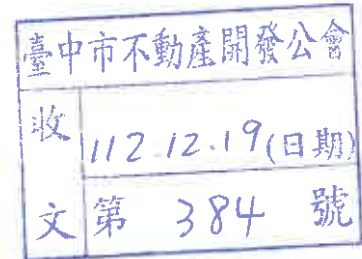 臺中市不動產開發公會
收
112.12.19(日期)
文
第 384 號